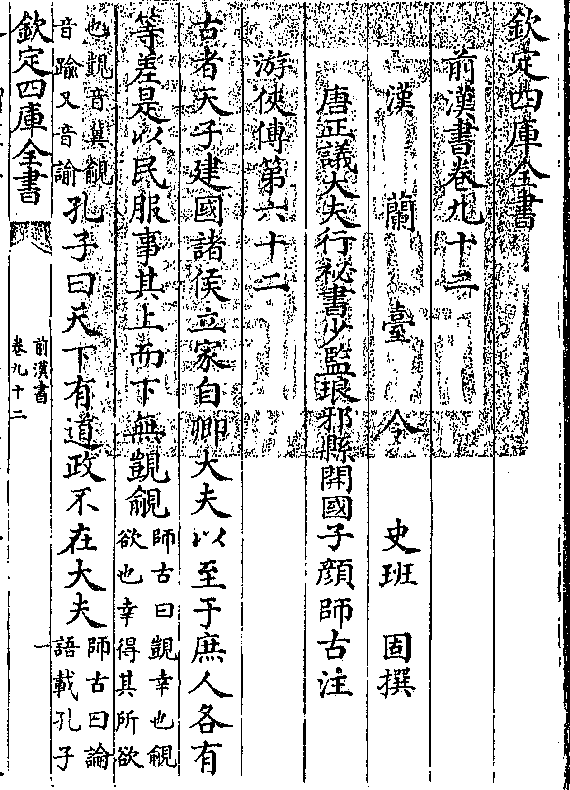 欽定四庫全書
前漢書卷九十二
漢蘭臺令史班固撰
唐正議大夫行祕書少監琅邪縣開國子顔師古注
游俠傳第六十二
古者天子建國諸侯立家自卿大夫以至于庶人各有
等差是以民服事其上而下無覬覦師古曰覬幸也覦
欲也幸得其所欲
也覬音冀覦
音踰又音諭孔子曰天下有道政不在大夫師古曰論
語載孔子
欽定四庫全書
前漢書
卷九十二
一